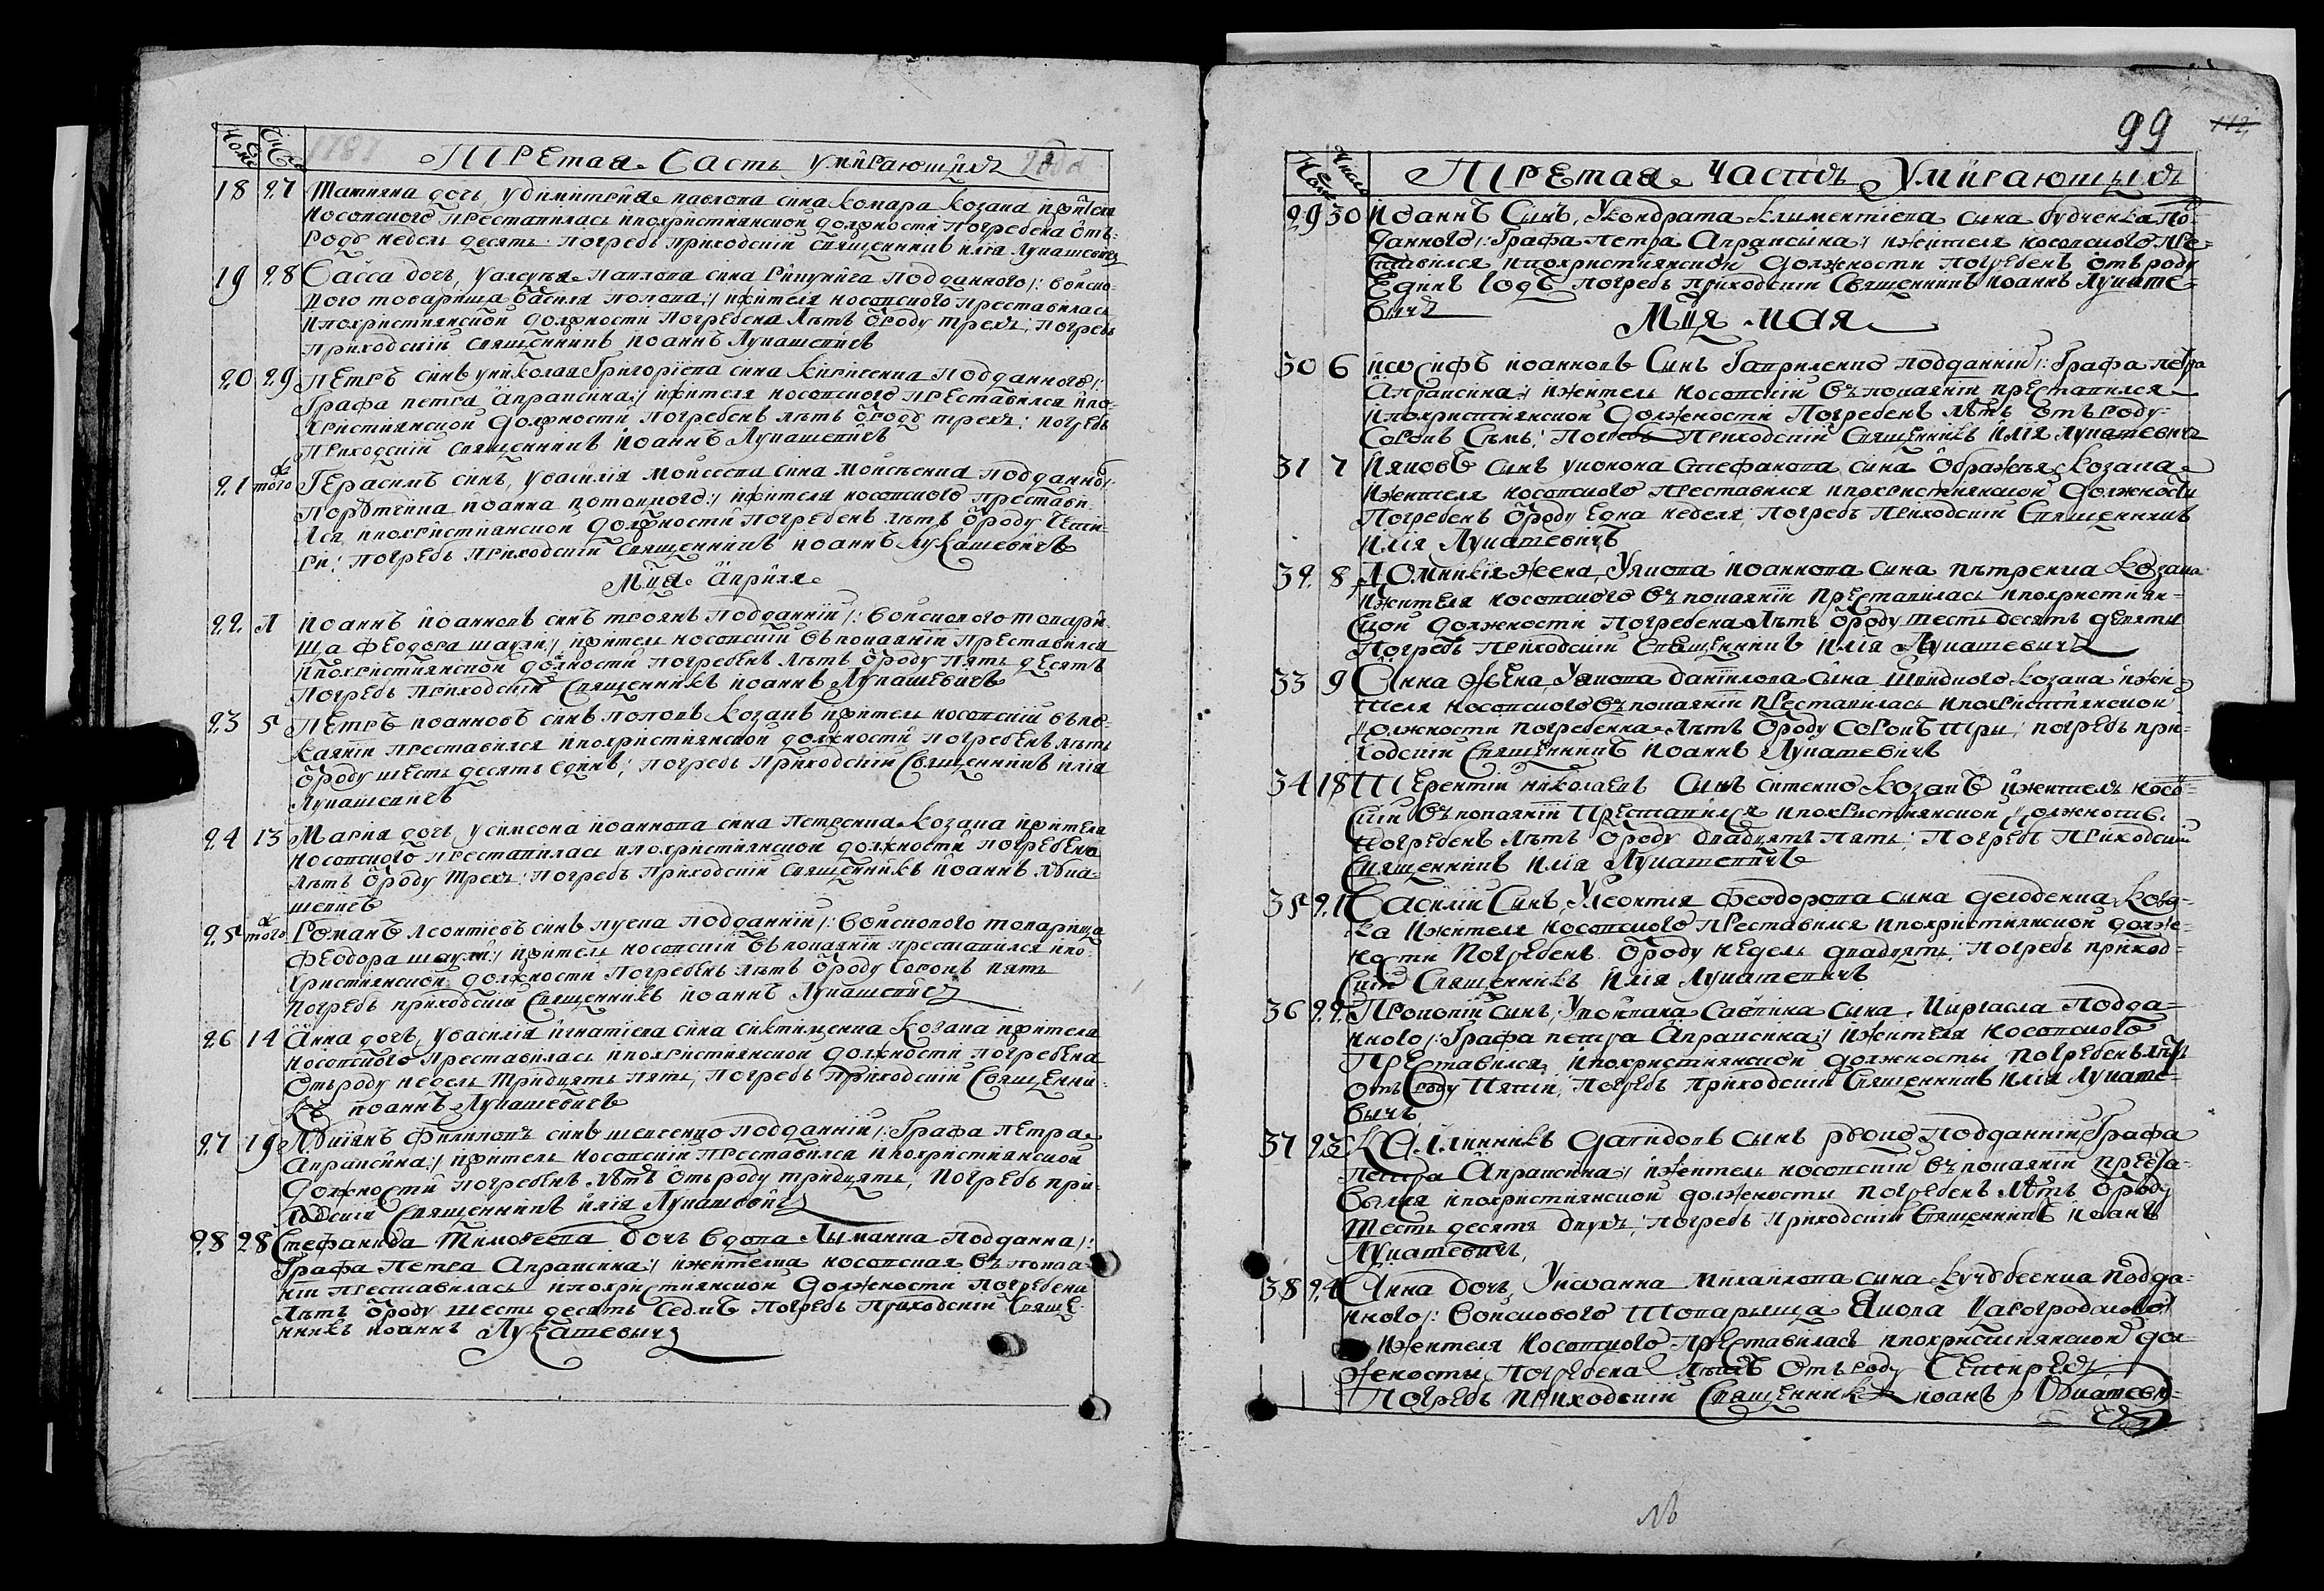 1787
Третая Часть умирающих
18 27 Татияна дочъ, у димитрия павлова сина комара козака и жителя
носовского преставилась и по християнской должности погребена отъ
роду недель десять погребъ приходский священникъ илия Лукашевичъ
19 28 Васса дочъ, у
павлова сина подданного /: войско-
вого товариша василя попова :/ жителя носовского преставилась
и по християнской должности погребена лѣтъ ѿроду трехъ; погребъ
приходский священникъ иоаннъ Лукашевичъ
20 29 Петръ синъ у николая Григориева сина подданного /:
Графа петра апраксина :/ жителя носовского преставился и по
християнской должности погребенъ лѣтъ ѿроду трехъ; погребъ
приходский священникъ иоаннъ Лукашевичъ
21 того Герасимъ синъ, у василия моисеева сина моисѣенка подданного /:
порутчика иоанна :/ жителя носовского престави
лся и по християнской должности погребенъ лѣтъ ѿроду чети-
ри; погребъ приходский священникъ иоаннъ Лукашевичъ
Мца априля
22 иоаннъ иоанновъ синъ троянъ подданний /: войскового товари
ща феодора шаулы :/ житель носовский въ покаянии преставился
и по християнской должности погребенъ лѣтъ ѿроду пять десятъ
погребъ приходский священникъ иоаннъ Лукашевичъ
23 5 Петръ иоанновъ синъ поповъ козакъ житель носовский въ по-
каянии преставился и по християнской должности погребенъ лѣтъ
ѿроду шесть десятъ единъ; погребъ приходский священникъ илия
Лукашевичъ
24 13 Мария дочъ, у симеона иоаннова сина петренка козака жителя
носовского преставилась и по християнской должности погребена
лѣтъ ѿроду трехъ; погребъ приходский священникъ иоаннъ Лука-
шевичъ
25 того Романъ леонтиевъ синъ подданний /: войскового товарища
феодора шаулы :/ житель носовский въ покаянии преставился и по
християнской должности погребенъ лѣтъ ѿроду сорокъ пять
погребъ приходский священникъ иоаннъ Лукашевичъ
26 14 Анна дочъ, у василия игнатиева сина козака жителя
носовского преставилась и по християнской должности погребена
отъ роду недель тридцять пять; погребъ приходский священни-
къ иоаннъ Лукашевичъ
27 19 Лукиянъ филиповъ синъ шевченко подданний /: Графа петра
апраксина :/ житель носовский преставился и по християнской
должности погребенъ лѣтъ отъ роду тридцять; погребъ при-
ходский священникъ илия Лукашевичъ
28 28 Стефанида Тимофеева дочъ вдова Лыманка подданна /:
Графа Петра Апраксина :/ жителка носовская въ покая-
нии преставилась и по християнской должности погребена
лѣтъ ѿроду шесть десятъ седмъ погребъ приходский свяще-
нникъ иоаннъ Лукашевичъ
99 112
Число
Третая часть Умирающыхъ
29 30 Иоаннъ Синъ, У кондрата климентиева сина будченка по-
данного /: Графа петра Апраксина :/ жителя носовского пре-
ставился и по християнской должности погребенъ отъ роду
Единъ годъ погребъ приходский Священникъ иоаннъ Лукаше-
вичъ
Мця мая
30 6 иосифъ иоанновъ Синъ Гавриленко подданний /: Графа петра
Апраксина :/ житель носовский въ покаянии преставился
и по християнской должности погребенъ лѣтъ отъ роду
сорокъ сѣмъ; погребъ приходский Священникъ илия лукашевичъ
31 7 Ияковъ синъ у конона стефанова сина козака
и жителя носовского преставился и по християнской должности
погребенъ ѿроду една неделя; погребъ приходский Священникъ
илия Лукашевичъ
32 8 Домникия жена, Уякова иоаннова сина пѣтренка козака
и жителя носовского въ покаянии преставилась и по християн-
ской должности погребена лѣтъ ѿроду шесть десятъ девяти
погребъ приходский Священникъ илия Лукашевичъ
33 9 Анна жена, Уякова даниилова сина козака и жи-
теля носовского въ покаянии преставилась и по християнской
должности погребенна лѣтъ ѿроду сорокъ три; погребъ при-
ходский Священникъ иоаннъ Лукашевичъ
34 18 Терентий николаевъ синъ ситенко козакъ и житель носо-
ский въ покаянии преставился и по християнской должности
погребенъ лѣтъ ѿроду двадцять пять; погребъ приходский
Священникъ илия Лукашевичъ
35 21 Василий Синъ, Улеонтия Феодорова сина козо-
ка и жителя носовского преставился и по християнской долж-
ности погребенъ ѿроду недель двадцять; погребъ приход-
ский Священникъ илия лукашевичъ
36 22 Прокопий синъ, У Савина сина подда-
нного /: Графа петра Апраксина :/ и жителя носовского
преставился и по християнской должности погребенъ лѣтъ
отъ роду пяти; погребъ приходский Священникъ илия лукаше-
вичъ
37 23 Калинникъ давидовъ сынъ подданний Графа
петра Апраксина :/ и житель носовский въ покаянии преста-
вился и по християнской должности погребенъ лѣтъ ѿроду
шесть десятя двухъ; погребъ приходский Священникъ иоанъ
Лукашевичъ,
38 24 Анна дочъ, Уиоанна михаилова сина подда-
нного /: войскового товарыща Якова :/
и жителя носовского преставиласъ и по християнской дол-
жности погребена лѣтъ отъ роду четирехъ
погребъ приходский Священникъ иоанъ Лукашеви-
чъ